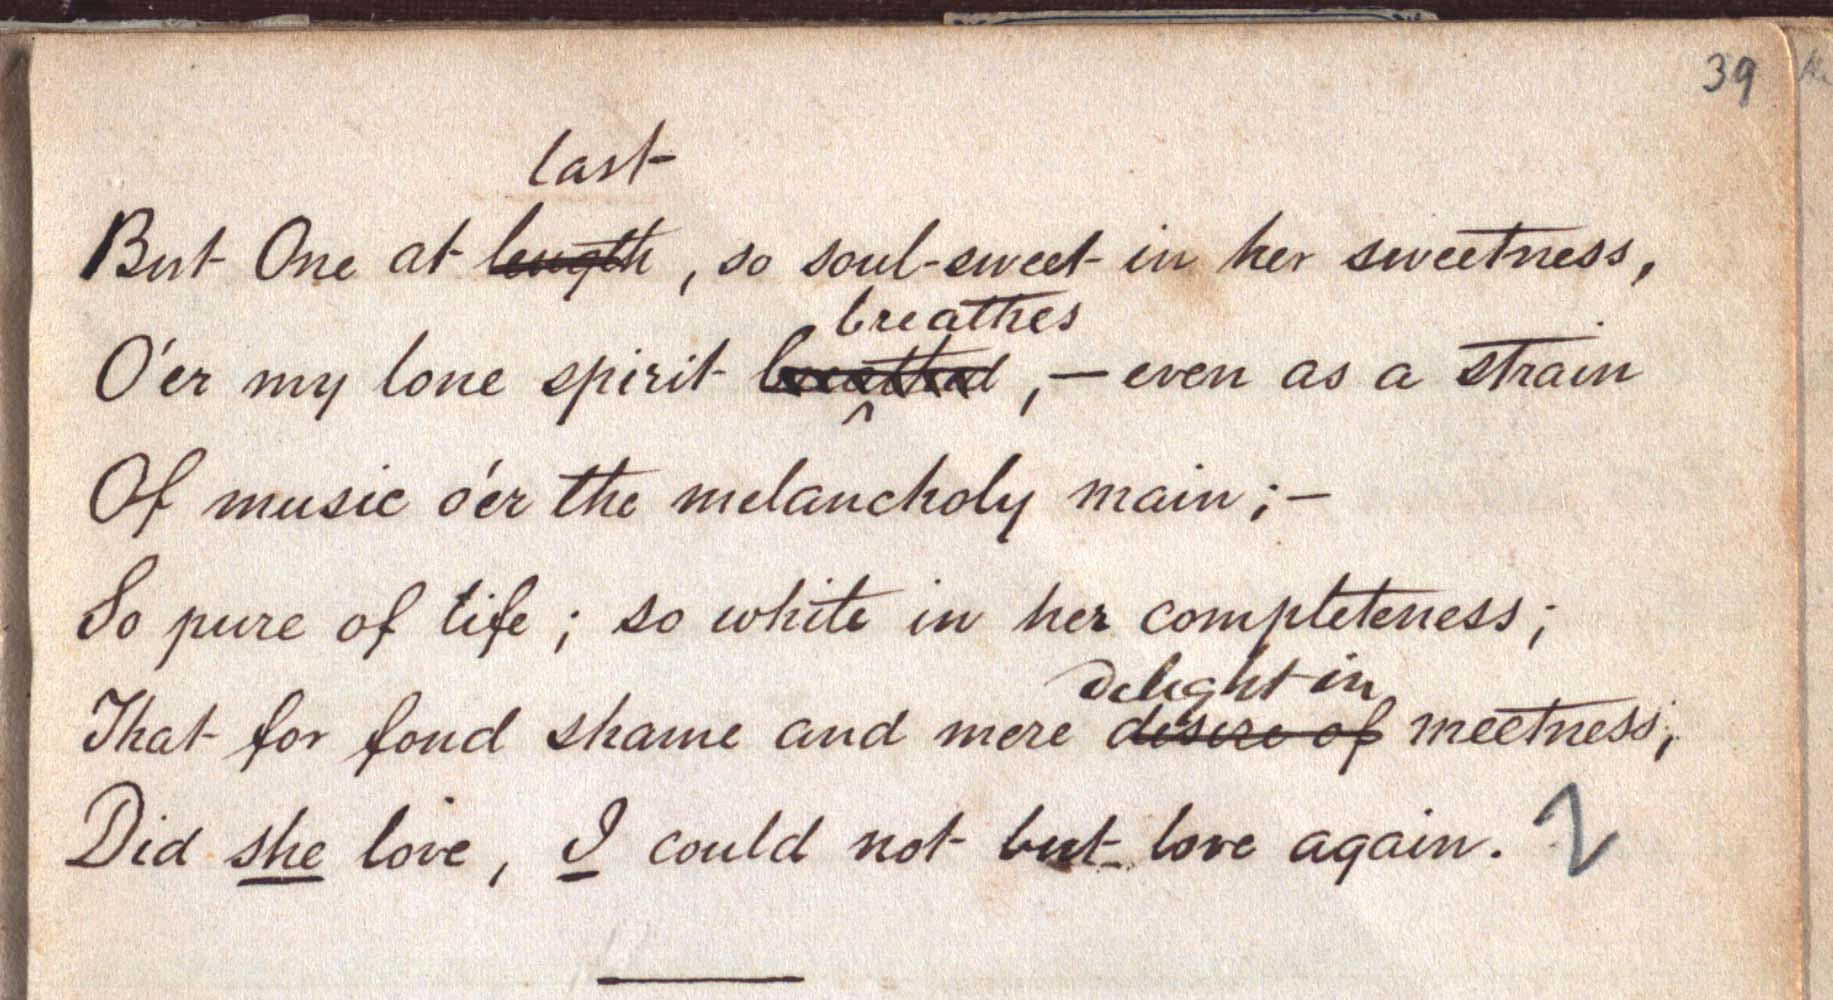 39
last
But One at length, so soul-sweet in her sweetness,
breathes
O'er my lone spirit breathed,— even as a strain
Of music o'er the melancholy main;—
So pure of life; so white in her completeness;
delight in
That for fond shame and mere desire of meetness,
Did she love, I could not but love again.